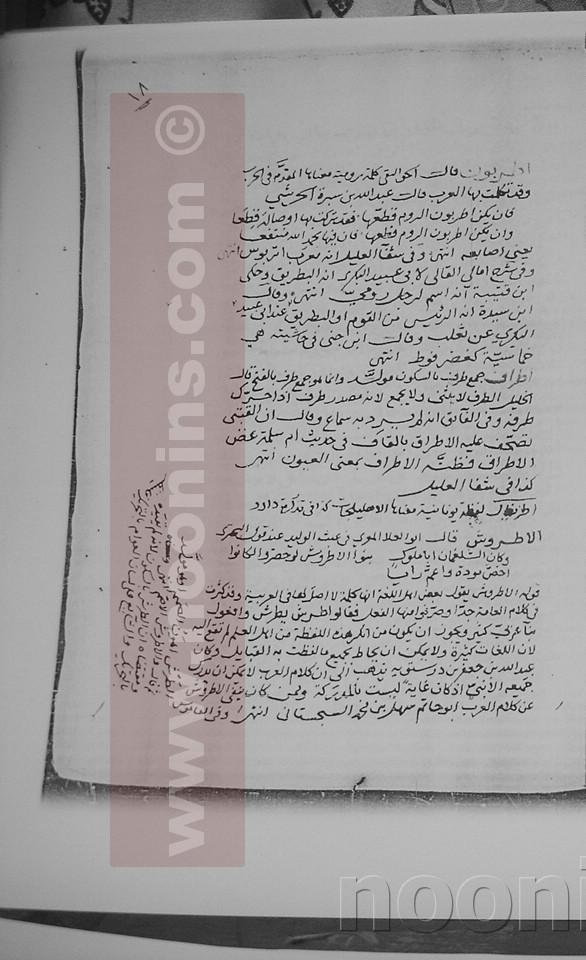 ٨١
اطربون قالت الجواليقي كلمة رومية معناها المقدم في الحرب
وقد تكلمت بها العرب قالت عبدالله بن سبرة الحرشي
فان يكن اطربون الروم قطعها فقد تركت بها اوصاله قطعا
وان يكن اطربون الروم قطعها فان فيها بحمد الله منتفعا
يعني اصابعه انتهى وفي شفا الغليل انه معرب اتربوس انتهى
وفي شرح امالي القالي لابي عبيد البكري انه البطريق وحكى
ابن قتيبة انه اسم لرجل رومي انتهى وقال
ابن سيدة انه الرئيس من القوم او البطريق عند ابي عبيد
البكري عن ثعلب وقالت ابن جني في حاشيته هي
خماسية كعضرفوط انتهى
اطراف جمع طرف بالسكون مولد وانما هو جمع طرف بالفتح قال
الخليل الطرف لا يثنى ولا يجمع لانه مصدر طرف اذا حرك
طرفه وفي الفايق انه لم يرد به سماع وقالت ان القتيبي
تصحف عليه الاطراق بالقاف في حديث ام سلمة غض
الاطراق فظنه الاطراف بمعنى العيون انتهى
كذا في شفا الغليل
لفظة يونانية معناها كذا في تذكرة داود
الاطروش قالت ابو العلا المعري في عبث الوليد عند قول البحتري
وكان
اخص مودة واعم رابا
قوله الاطروش يقول بعض اهل اللغة انها كلمة لا اصل لها في العربية وقد كثرت
في كلام العامة جدا وصرفوا منها الفعل فقالوا طرش يطرش وافعول
كثير ويجوز ان يكون من انكر هذه اللفظة من اهل العلم لم تقع اليه
لان اللغات كثيرة ولا يمكن ان يحاط بجميع ما لفظت به القبايل وكان
عبدالله بن جعفر بن درستويه يذهب الى ان كلام العرب لا يمكن ان يدرك
جميعه الا نبي اذ كان غاية ليست بالمدركة وممن كان ينفي الاطروش
عن كلام العرب ابو حاتم سهل بن محمد السجستاني انتهى وفي القاموس
www.noonins.com ©
nooni